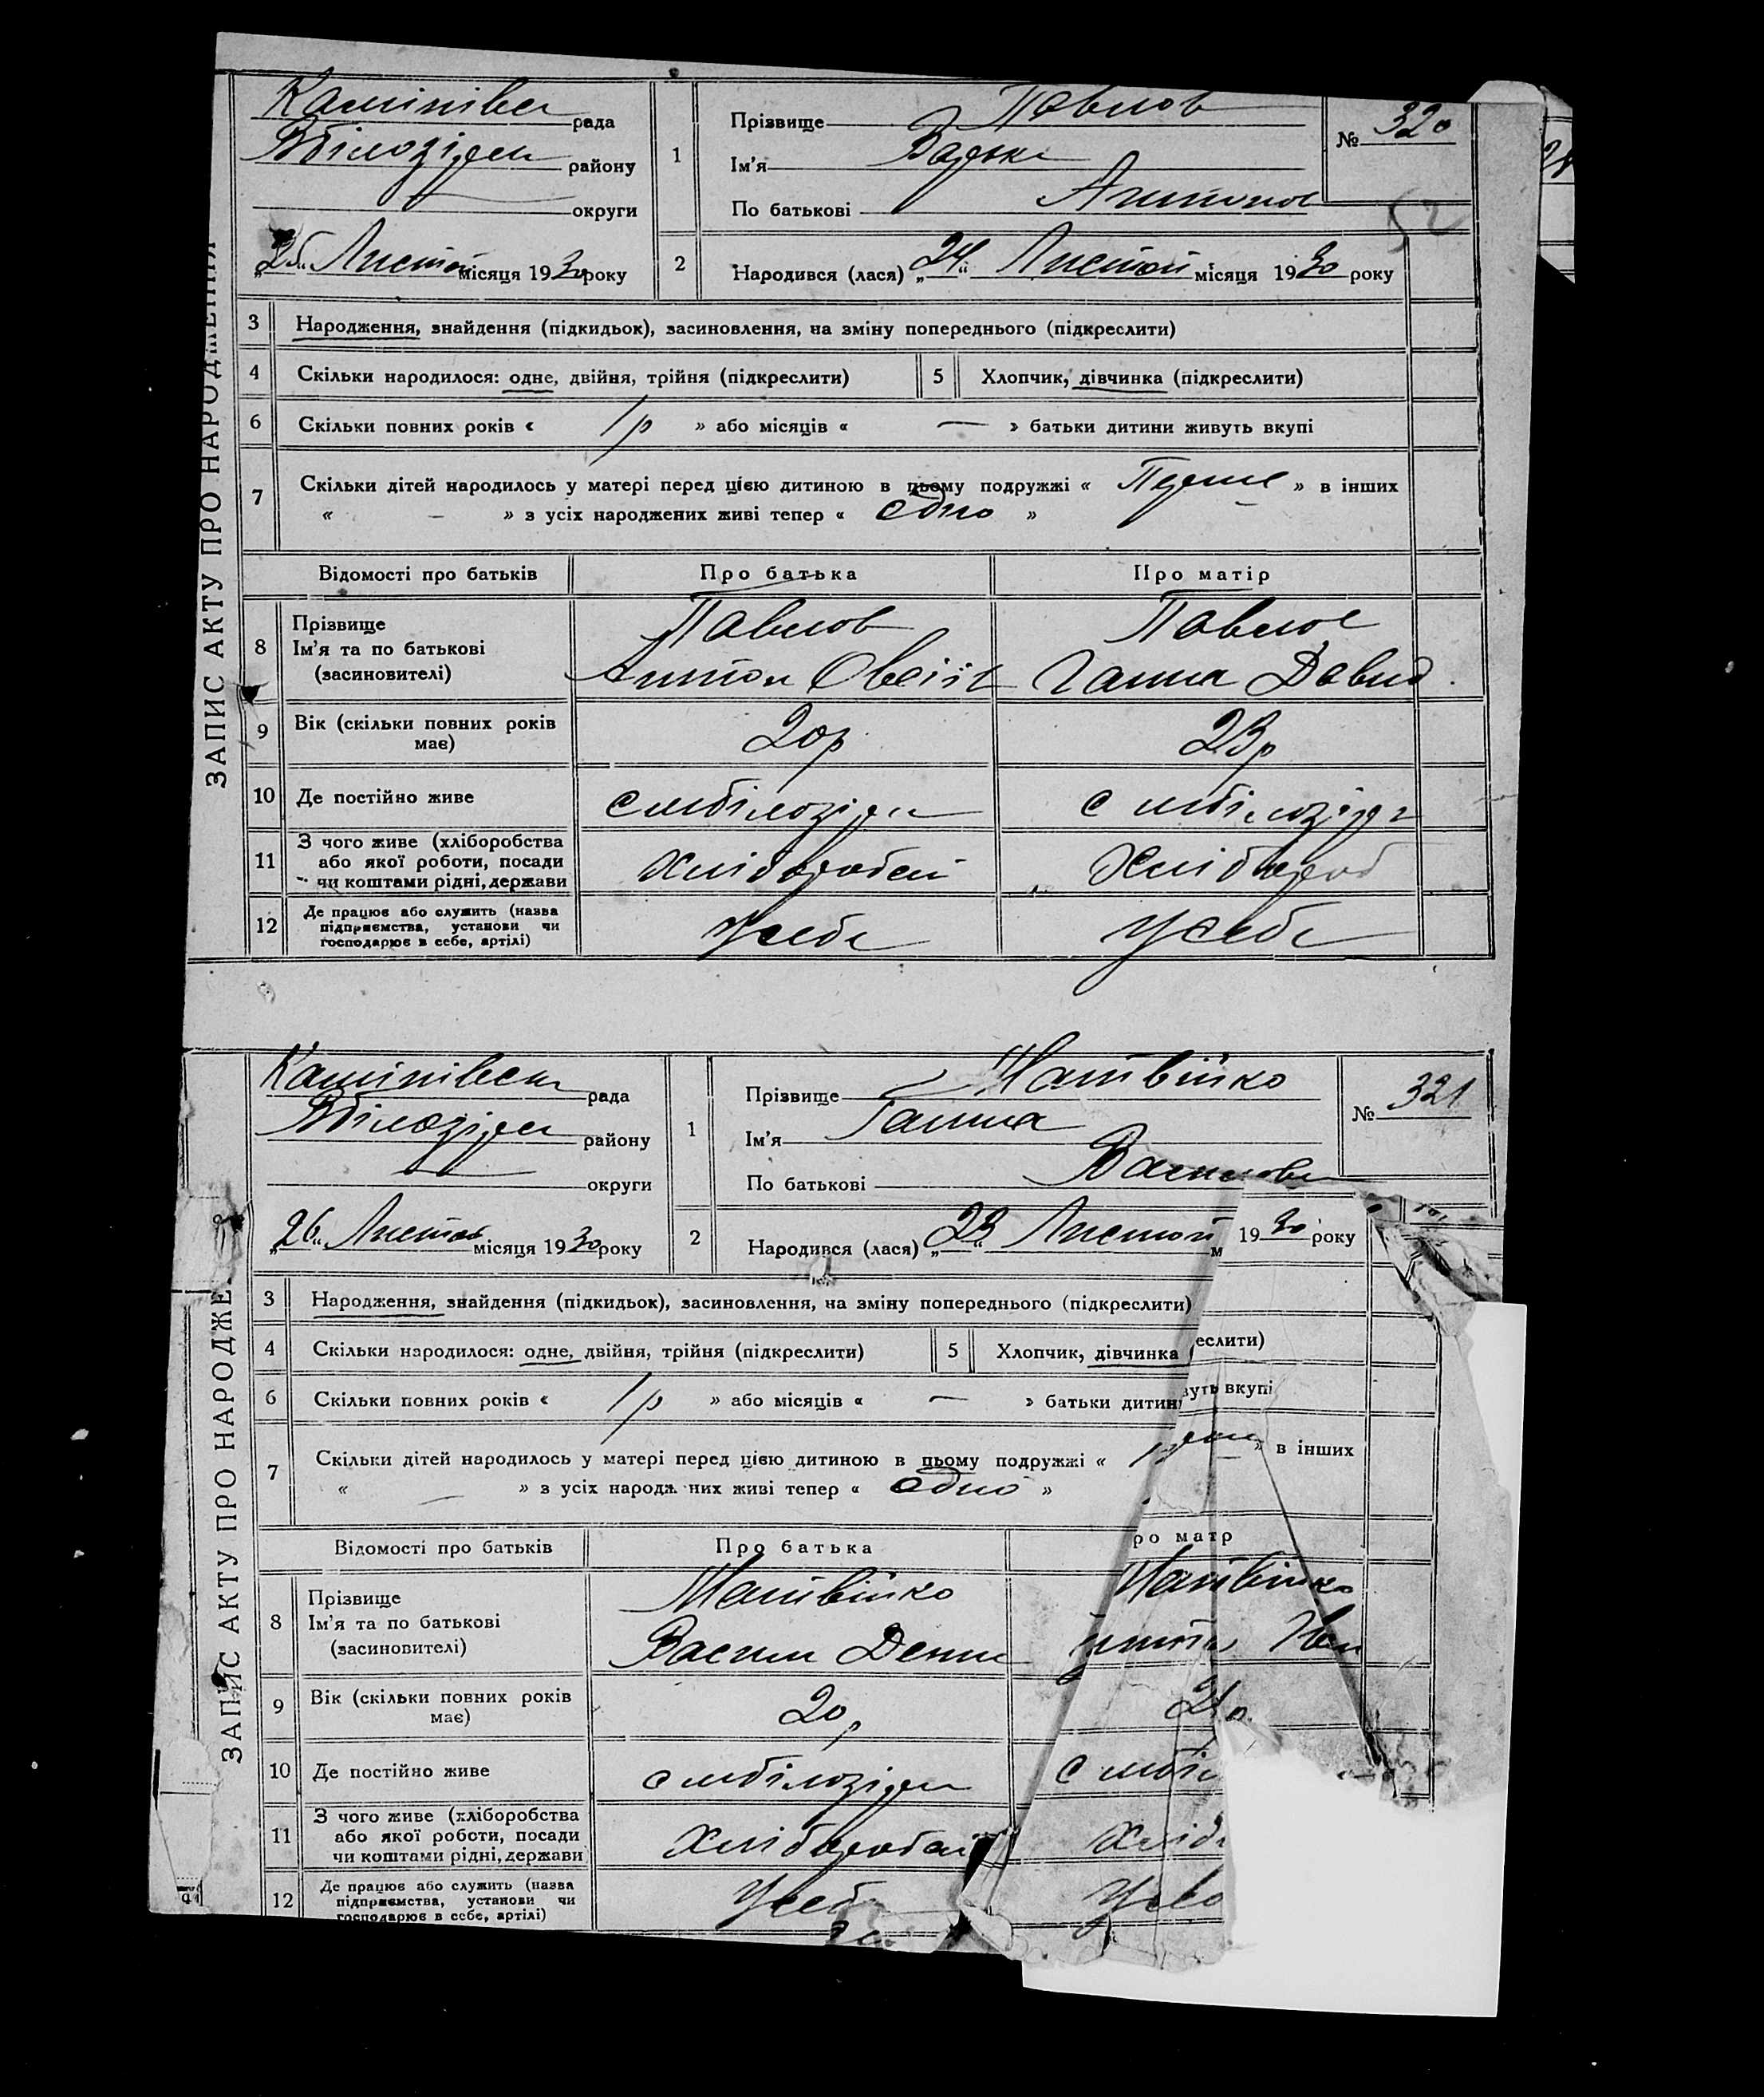 ЗАПИС АКТУ ПРО НАРОДЖЕННЯ
рада
району
округи
„25“ Листоп місяця 1930 року
1
Прізвище Павлов
Ім'я
По батькові Антонов
№ 320
2
Народився (лася) „24“ Листоп місяця 1930 року
3 Народження, знайдення (підкидьок), засиновлення, на зміну попереднього (підкреслити)
4 Скільки народилося: одне, двійня, трійня (підкреслити) 5 Хлопчик, дівчинка (підкреслити)
6 Скільки повних років « 1 р » або місяців « — » батьки дитини живуть вкупі
7 Скільки дітей народилось у матері перед цією дитиною в цьому подружжі « Перше » в інших
« — » з усіх народжених живі тепер « одно »
Відомості про батьків Про батька Про матір
8 Прізвище Павлов Павлов
Ім'я та по батькові
(засиновителі) Антон Ганна Давид.
9 Вік (скільки повних років має) 20 р 23 р
10 Де постійно живе
11 З чого живе (хліборобства
або якої роботи, посади
чи коштами рідні, держави Хлібороб
12 Де працює або служить (назва
підприємства, установи чи
господарює в себе, артілі) У себе У себе
ЗАПИС АКТУ ПРО НАРОДЖЕ
рада
району
округи
„26“ Листоп місяця 1930 року
1
Прізвище Матвійко
Ім'я Ганна
По батькові Василов
№ 321
2
Народився (лася) „23“ Листоп м 1930 року
3 Народження, знайдення (підкидьок), засиновлення, на зміну попереднього (підкреслити)
4 Скільки народилося: одне, двійня, трійня (підкреслити) 5 Хлопчик, дівчинка еслити)
6 Скільки повних років « 1 р » або місяців « — » батьки дитин вуть вкупі
7 Скільки дітей народилось у матері перед цією дитиною в цьому подружжі « » в інших
« — » з усіх народж них живі тепер « одно »
Відомості про батьків Про батька ро матр
8 Прізвище Матвійко Матвійко
Ім'я та по батькові
(засиновителі) Васил Денис Іван
9 Вік (скільки повних років має) 20 р
10 Де постійно живе
11 З чого живе (хліборобства
або якої роботи, посади
чи коштами рідні, держави
12 Де працює або служить (назва
підприємства, установи чи
господарює в себе, артілі) У себе